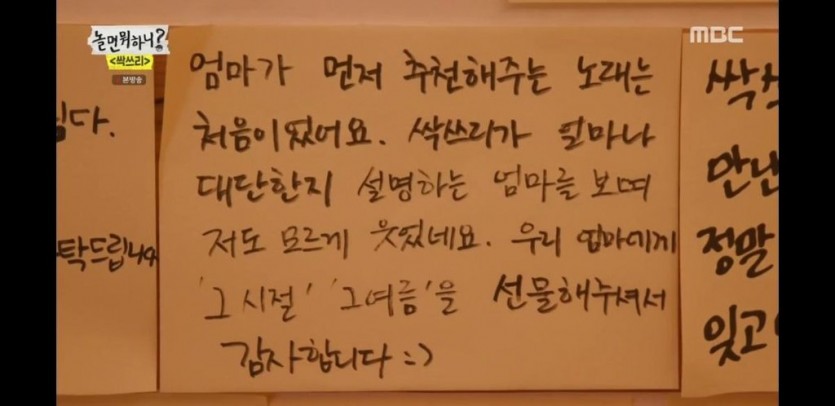 놀면 뭐하니?
<싹쓰리>
본방송
MBC
엄마가 먼저 추천해주는 노래는
처음이었어요. 싹쓰리가 얼마나
대단한지 설명하는 엄마를 보며
저도 모르게 웃었네요. 우리 엄마에게
'그 시절' '그여름'을 선물해주셔서
감사합니다 :)
탁드립니다
만난
정말
잊고